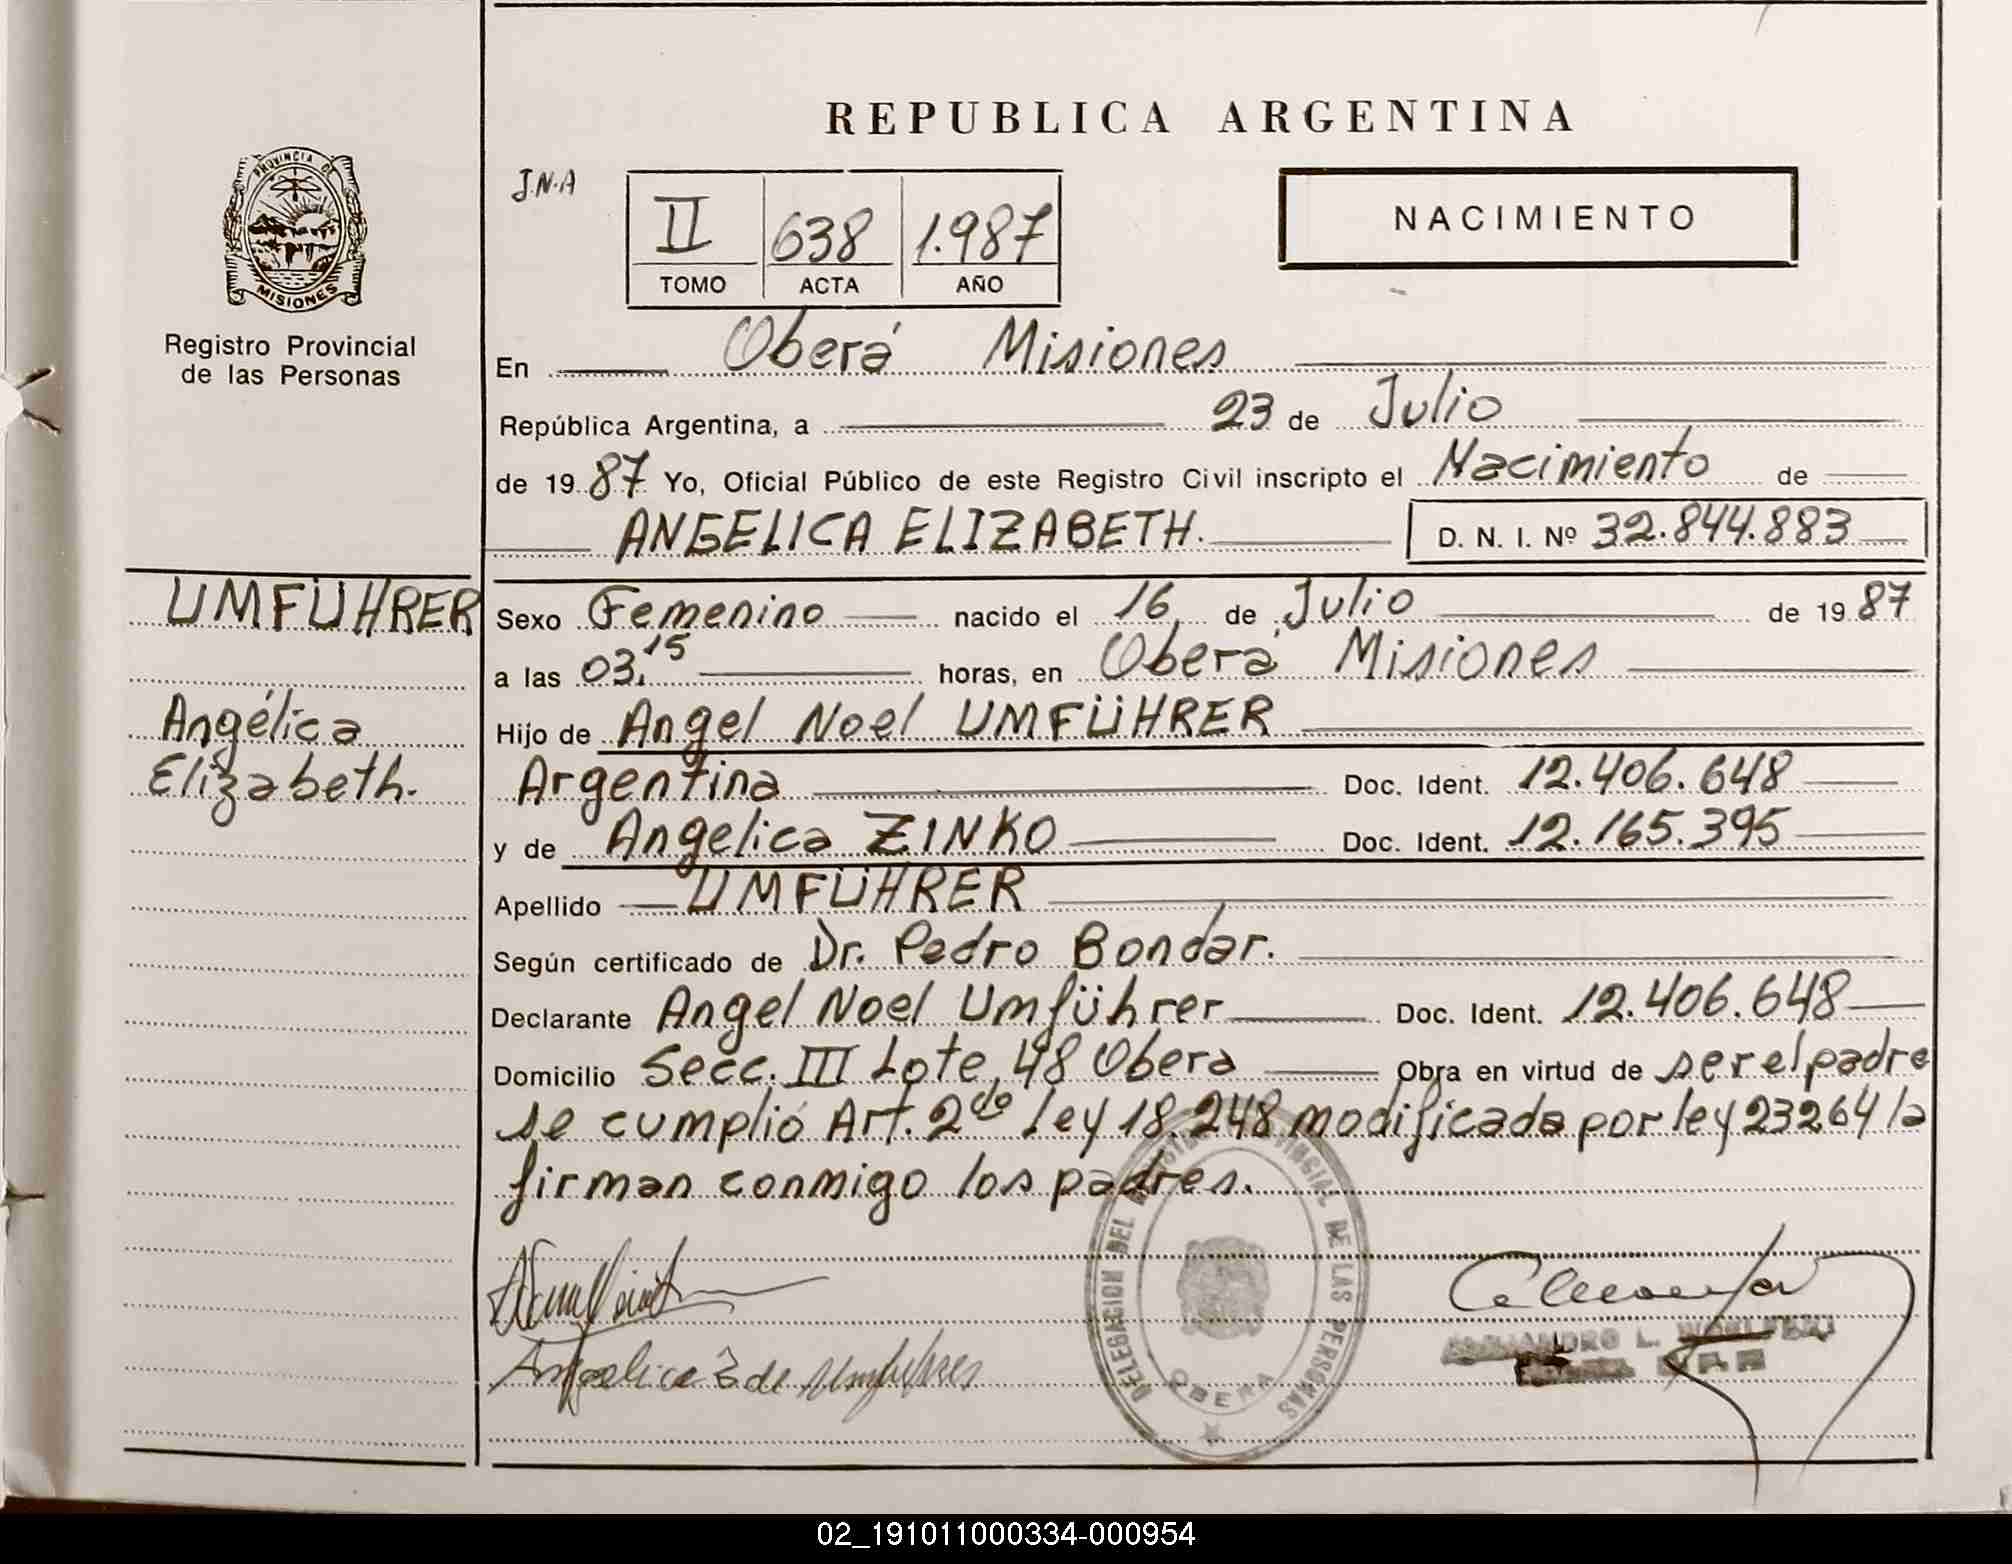 REPUBLICA ARGENTINA
J.N.A
II 638 1.987
TOMO ACTA AÑO
NACIMIENTO
PROVINCIA DE
MISIONES
Registro Provincial
de las Personas
En Oberá Misiones
República Argentina, a 23 de Julio
de 1987 Yo, Oficial Público de este Registro Civil inscripto el Nacimiento de
ANGELICA ELIZABETH. D. N. I. Nº 32.844.883
UMFÜHRER
Angélica
Elizabeth.
Sexo Femenino nacido el 16 de Julio de 1987
a las 03.15 horas, en Oberá Misiones
Hijo de Angel Noel UMFÜHRER
Argentina Doc. Ident. 12.406.648
y de Angelica ZINKO Doc. Ident. 12.165.395
Apellido UMFÜHRER
Según certificado de Dr. Pedro Bondar.
Declarante Angel Noel Umführer Doc. Ident. 12.406.648
Domicilio Secc. III Lote 48 Obera Obra en virtud de ser el padre
se cumplió Art. 2do ley 18.248 modificada por ley 23264 la
firman conmigo los padres.
DELEGACION DEL PROVINCIAL DE LAS PERSONAS
OBERA
Angelica Z de Umführer
ALEJANDRO L.
02_191011000334-000954